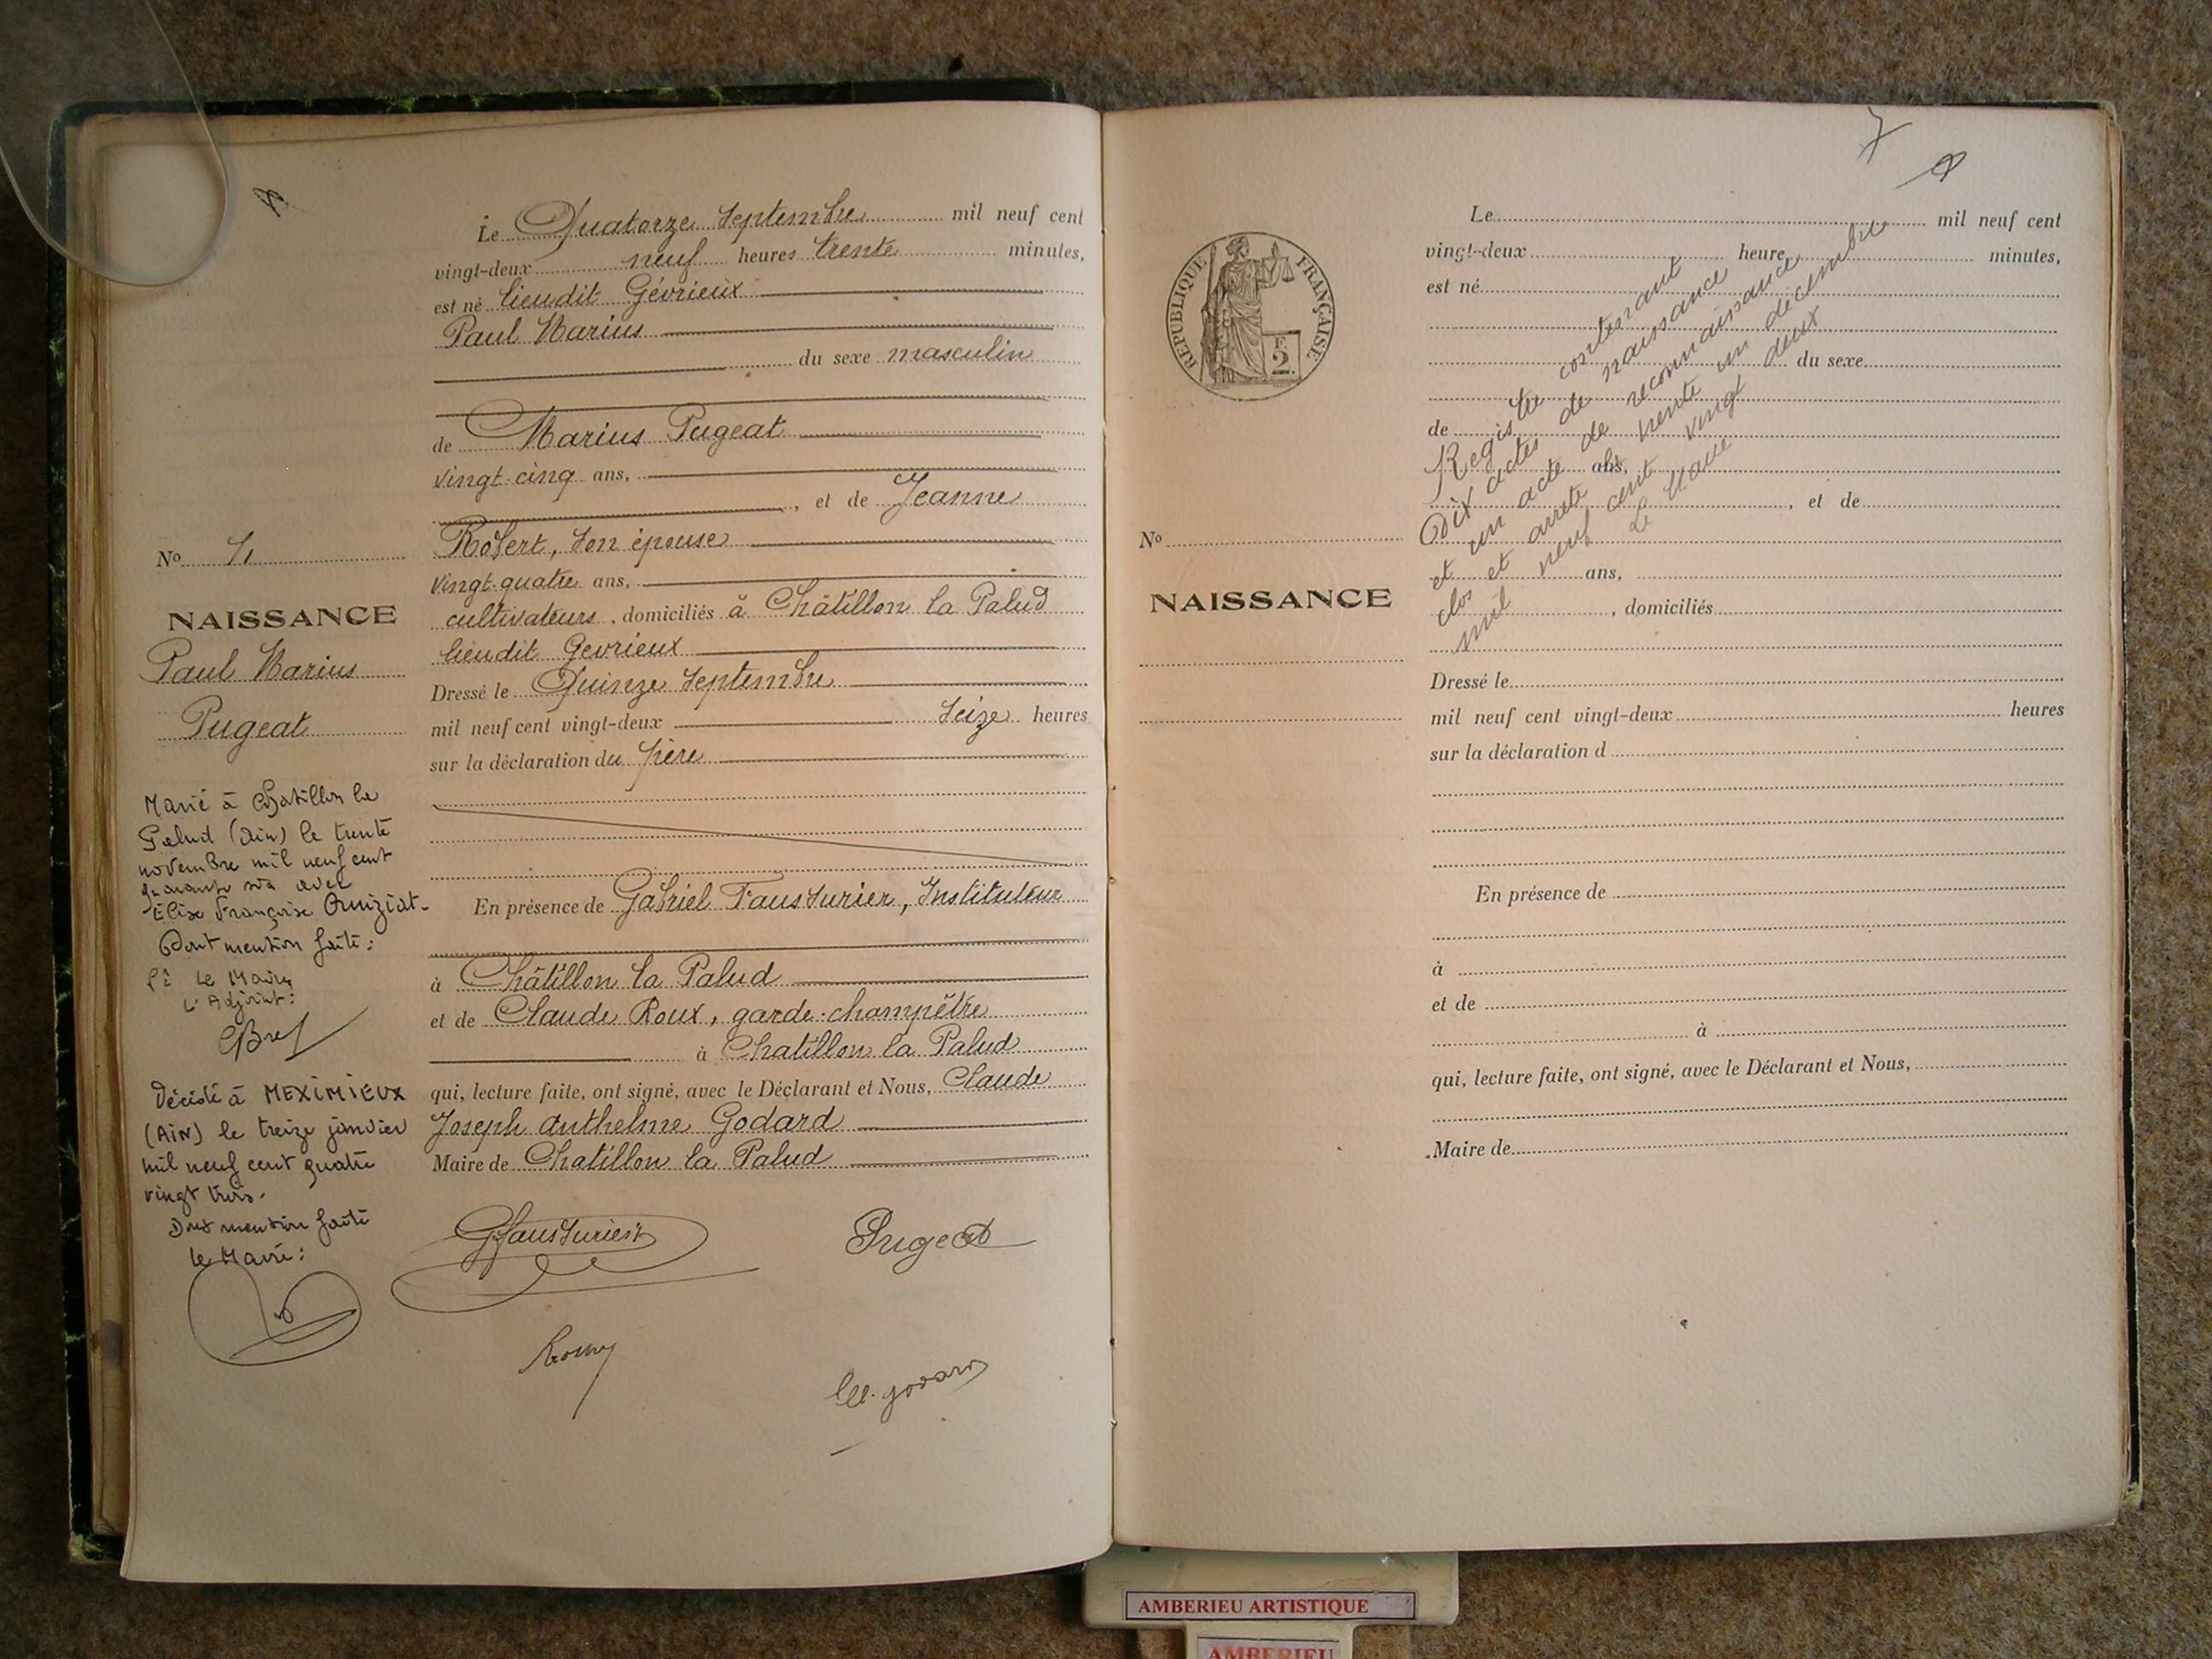 Le Quatorze Septembre mil neuf cent
vingt-deux neuf heures trente minutes,
est né lieudit Gévrieux
Paul Marius
du sexe masculin
de Marius Pugeat
vingt-cinq ans,
, et de Jeanne
Robert, son épouse
vingt-quatre ans,
cultivateurs, domiciliés à Châtillon la Palud
lieudit Gevrieux
Dressé le Quinze Septembre
mil neuf cent vingt-deux Seize heures
sur la déclaration du père
En présence de Gabriel Fausturier, Instituteur
à Châtillon la Palud
et de Claude Roux, garde-champêtre
à Chatillon la Palud
qui, lecture faite, ont signé, avec le Déclarant et Nous, Claude
Joseph Anthelme Godard
Maire de Chatillon la Palud
GFausturier
Pugeat
Roux
Cl. Godard
No
NAISSANCE
Paul Marius
Pugeat
Marié à Chatillon la
Palud (Ain) le trente
novembre mil neuf cent
quarante six avec
Elise Françoise
Dont mention faite :
Pr Le Maire
L'Adjoint :
Décédé à MEXIMIEUX
(AIN) le treize janvier
mil neuf cent quatre
vingt trois.
Dont mention faite
le Maire :
7
RÉPUBLIQUE FRANÇAISE
F.
2.
Le mil neuf cent
vingt-deux heure minutes,
est né
du sexe
de
ans,
, et de
ans,
, domiciliés
No
NAISSANCE
Dressé le
mil neuf cent vingt-deux heures
sur la déclaration d
En présence de
à
et de
à
qui, lecture faite, ont signé, avec le Déclarant et Nous,
Maire de
Registre contenant
Dix actes de naissance
et un acte de reconnaissance
clos et arrêté trente un décembre
mil neuf cent vingt deux
Le Maire
AMBERIEU ARTISTIQUE
AMBERIEU